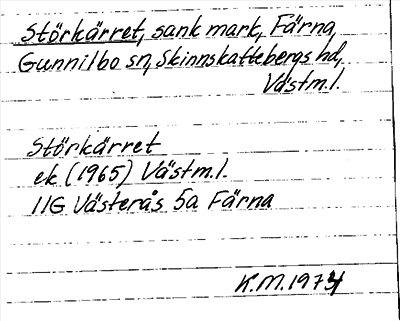 Störkärret, sank mark, Färna,
Gunnilbo sn, Skinnskattebergs hd,
Västm.l.
Störkärret
ek (1965) Västm.l.
11G Västerås 5a Färna
K.M. 1974